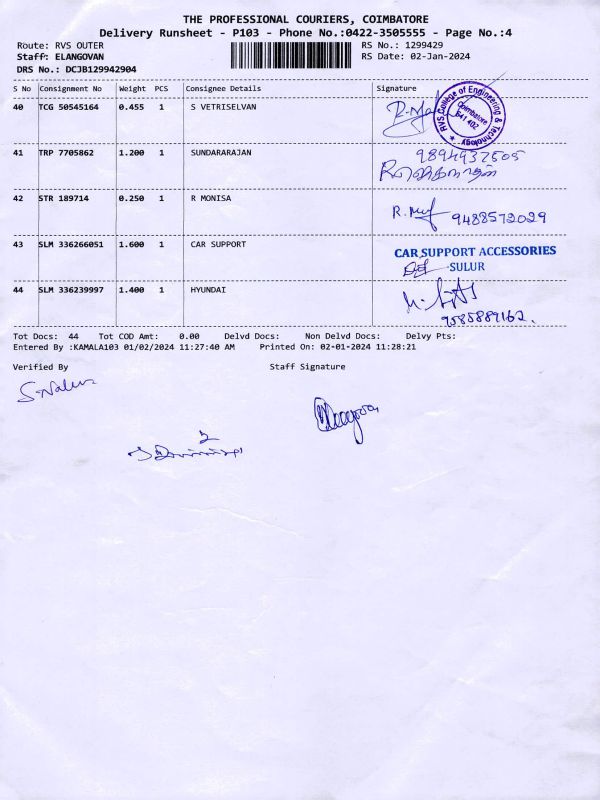 THE PROFESSIONAL COURIERS, COIMBATORE
Delivery Runsheet - P103 - Phone No.:0422-3505555 - Page No.:4
Route: RVS OUTER RS No.: 1299429
Staff: ELANGOVAN RS Date: 02-Jan-2024
DRS No.: DCJB129942904
S No Consignment No Weight PCS Consignee Details Signature
40 TCG 50545164 0.455 1 S VETRISELVAN
RVS College of Engineering & Technology
Coimbatore
641 402
41 TRP 7705862 1.200 1 SUNDARARAJAN
9894937505
42 STR 189714 0.250 1 R MONISA
9488572029
43 SLM 336266051 1.600 1 CAR SUPPORT
CAR SUPPORT ACCESSORIES
SULUR
44 SLM 336239997 1.400 1 HYUNDAI
9585889162.
Tot Docs: 44 Tot COD Amt: 0.00 Delvd Docs: Non Delvd Docs: Delvy Pts:
Entered By :KAMALA103 01/02/2024 11:27:40 AM Printed On: 02-01-2024 11:28:21
Verified By Staff Signature